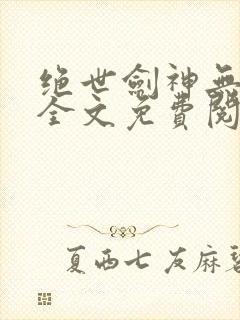 绝世劍神無
全文免費閱
夏西七友麻碧